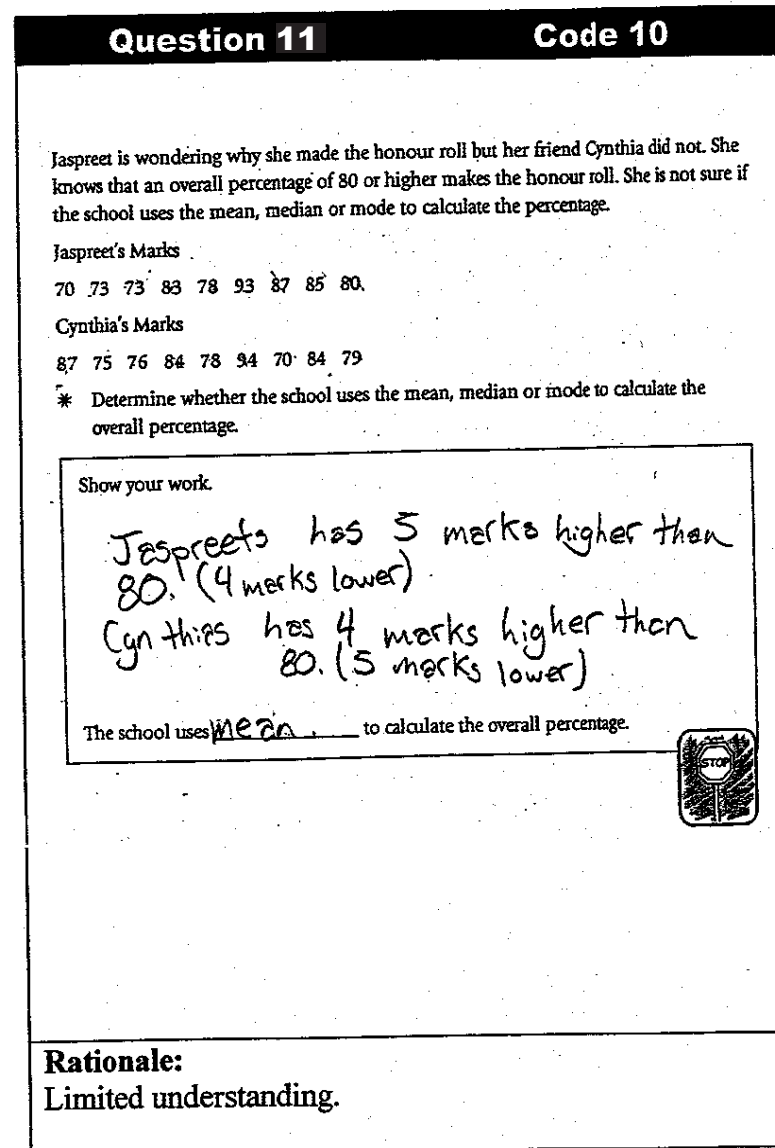 Question 11 Code 10
Jaspreet is wondering why she made the honour roll but her friend Cynthia did not. She
knows that an overall percentage of 80 or higher makes the honour roll. She is not sure if
the school uses the mean, median or mode to calculate the percentage.
Jaspreet's Marks
70 73 73 83 78 93 87 85 80
Cynthia's Marks
87 75 76 84 78 94 70 84 79
* Determine whether the school uses the mean, median or mode to calculate the
overall percentage.
Show your work.
Jaspreets has 5 marks higher than
80. (4 marks lower)
Cynthias has 4 marks higher than
80. (5 marks lower)
The school uses mean. to calculate the overall percentage.
STOP
Rationale:
Limited understanding.